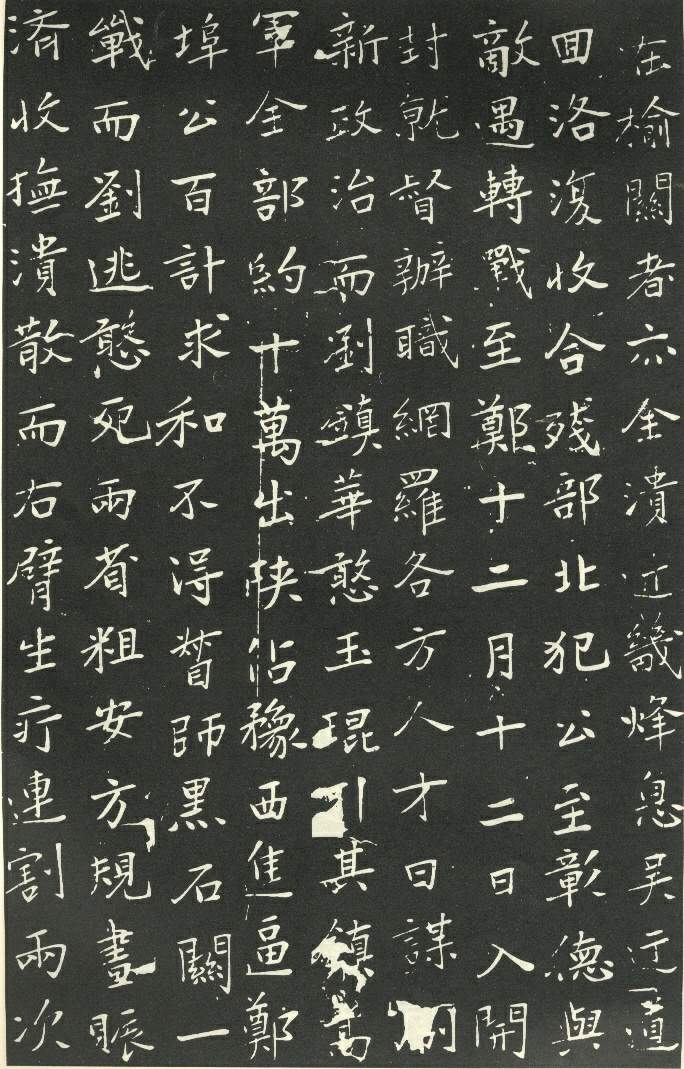 在榆關者亦全潰近畿烽息吳迂道
回洛復收合殘部北犯公至彰德與
敵遇轉戰至鄭十二月十二日入開
封就督辦職網羅各方人才日謀
新政治而劉鎮華憨玉琨引其鎮嵩
軍全部約十萬出陝佔豫西進逼鄭
埠公百計求和不得誓師黑石關一
戰而劉逃憨死兩省粗安方規畫賑
濟收撫潰散而右臂生疔連割兩次